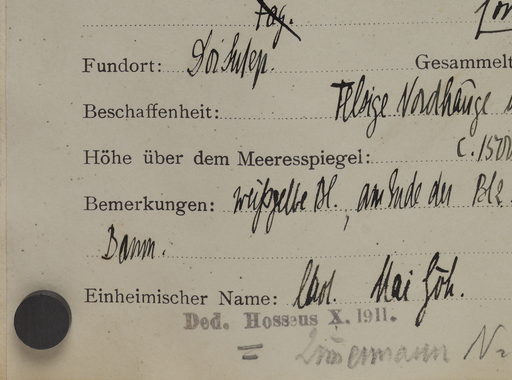 Tag.
Fundort: Doi Sutep. Gesammelt
Beschaffenheit: Felsige Nordhänge
Höhe über dem Meeresspiegel: c. 1500
Bemerkungen: weißgelbe Bl., am Ende der
Baum.
Einheimischer Name: Laot. Mai Göh.
Ded. Hosseus X. 1911.
=